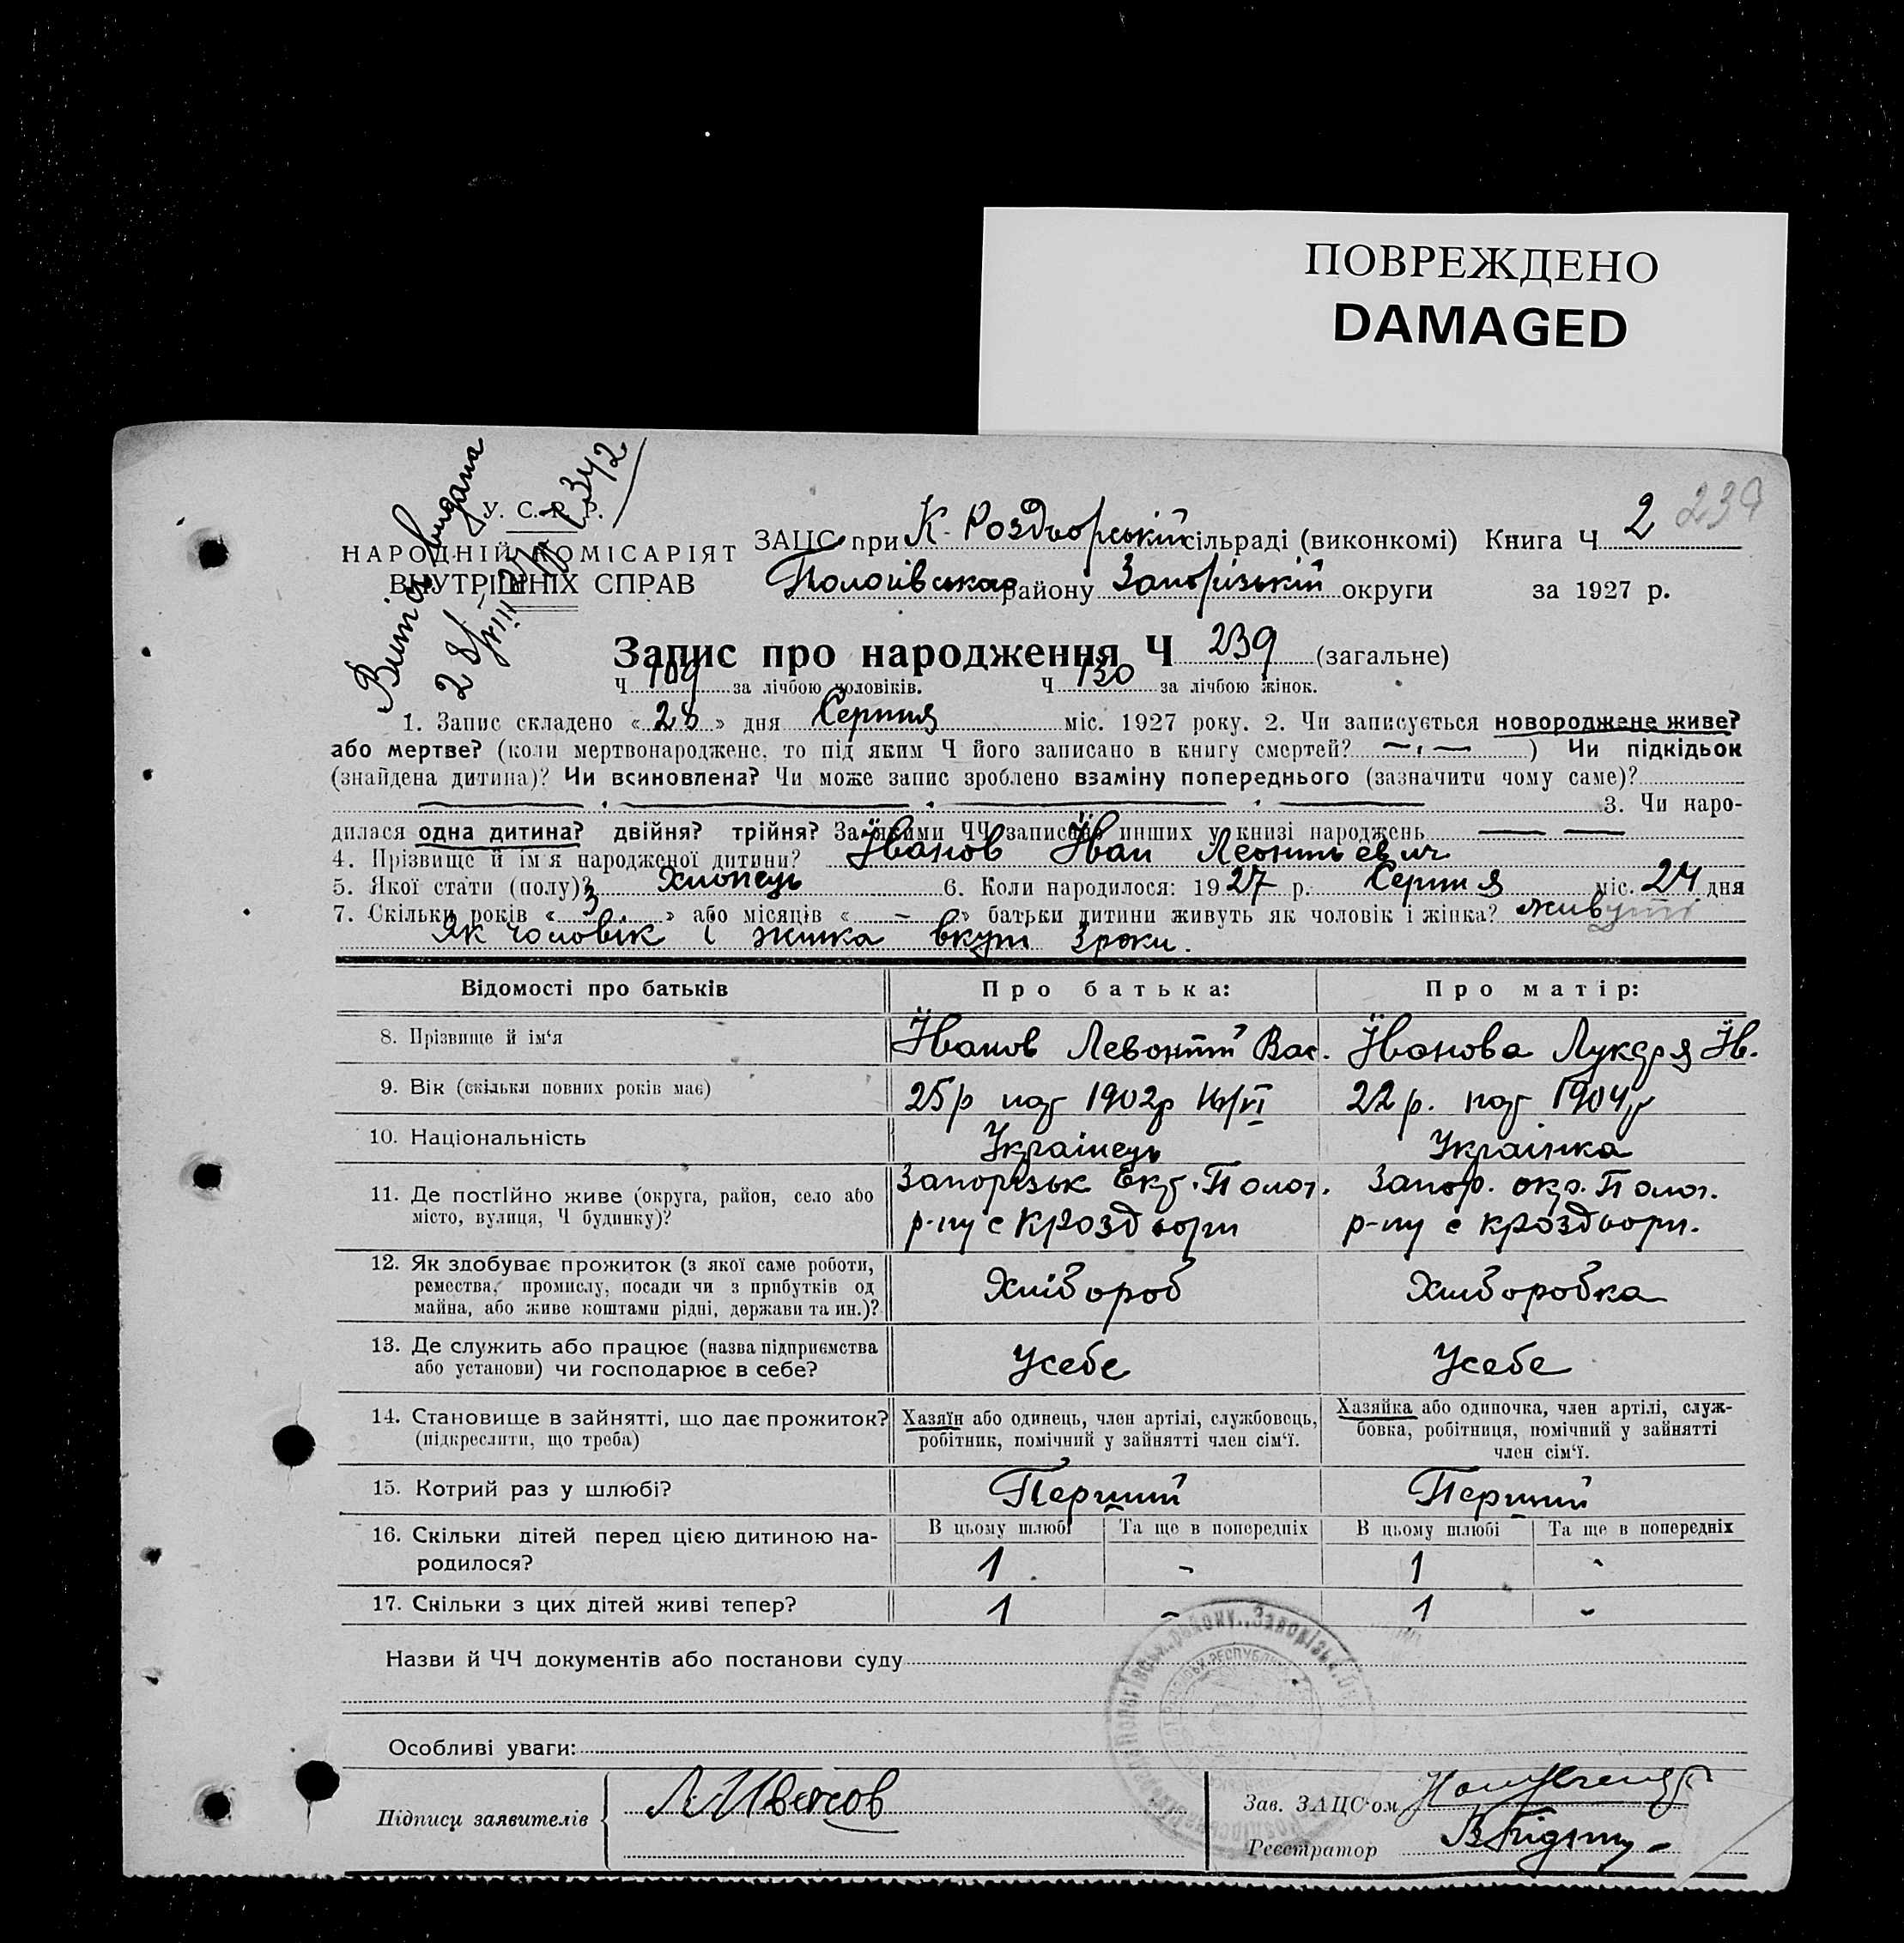 ПОВРЕЖДЕНО
DAMAGED
239
Витяг видана
28/VIII 27 № 342
У. С. Р. Р.
НАРОДНІЙ КОМІСАРІЯТ
ВНУТРІШНІХ СПРАВ
ЗАЦС при К-Роздорській сільраді (виконкомі) Книга Ч 2
Пологівського району Запорізькій округи за 1927 р.
Запис про народження Ч 239 (загальне)
Ч 109 за лічбою чоловіків. Ч 130 за лічбою жінок.
1. Запис складено « 28 » дня Серпня міс. 1927 року. 2. Чи записується новороджене живе?
або мертве? (коли мертвонароджене, то під яким Ч його записано в книгу смертей? ) Чи підкідьок
(знайдена дитина)? Чи всиновлена? Чи може запис зроблено взаміну попереднього (зазначити чому саме)?
3. Чи наро-
дилася одна дитина? двійня? трійня? За якими ЧЧ записано инших у книзі народжень
4. Прізвище й ім'я народженої дитини? Іванов Іван Леонтьевич
5. Якої стати (полу)? Хлопець 6. Коли народилося: 1927 р. Серпня міс. 24 дня
7. Скільки років « 3 » або місяців « - » батьки дитини живуть як чоловік і жінка? живуть
Як чоловік і жинка вкупі 3 роки.
Відомості про батьків
Про батька:
Про матір:
8. Прізвище й ім'я
Іванов Левонтій Вас.
Іванова Лукеря Ів.
9. Вік (скільки повних років має)
25 р 1902р /VI
22 р. 1904р
10. Національність
Українець
Українка
11. Де постійно живе (округа, район, село або
місто, вулиця, Ч будинку)?
Запорізьк Окр. Полог.
р-ну с К роздори
Запор. окр. Полог.
р-ну с К роздори.
12. Як здобуває прожиток (з якої саме роботи,
ремества, промислу, посади чи з прибутків од
майна, або живе коштами рідні, держави та ин.)?
Хлібороб
Хліборобка
13. Де служить або працює (назва підприємства
або установи) чи господарює в себе?
Усебе
Усебе
14. Становище в зайнятті, що дає прожиток?
(підкреслити, що треба)
Хазяїн або одинець, член артілі, службовець,
робітник, помічний у зайнятті член сім'ї.
Хазяйка або одиночка, член артілі, служ-
бовка, робітниця, помічний у зайнятті
член сім'ї.
15. Котрий раз у шлюбі?
Перший
Перший
16. Скільки дітей перед цією дитиною на-
родилося?
В цьому шлюбі Та ще в попередніх В цьому шлюбі Та ще в попередніх
1 - 1 -
17. Скільки з цих дітей живі тепер?
1 - 1 -
Назви й ЧЧ документів або постанови суду
Особливі уваги:
Підписи заявителів
Л Иванов
Зав. ЗАЦС'ом
Реєстратор